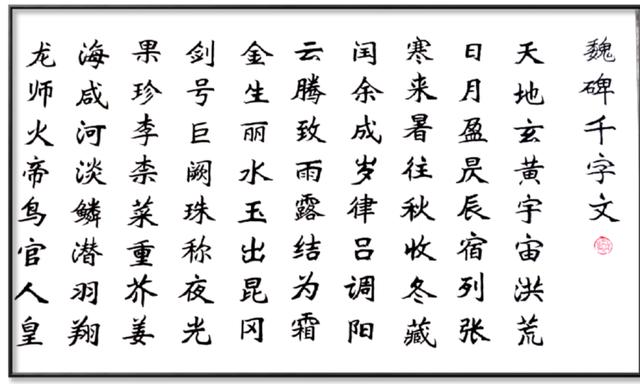 魏碑千字文
天地玄黄宇宙洪荒
日月盈昃辰宿列张
寒来暑往秋收冬藏
闰余成岁律吕调阳
云腾致雨露结为霜
金生丽水玉出昆冈
剑号巨阙珠称夜光
果珍李柰菜重芥姜
海咸河淡鳞潜羽翔
龙师火帝鸟官人皇